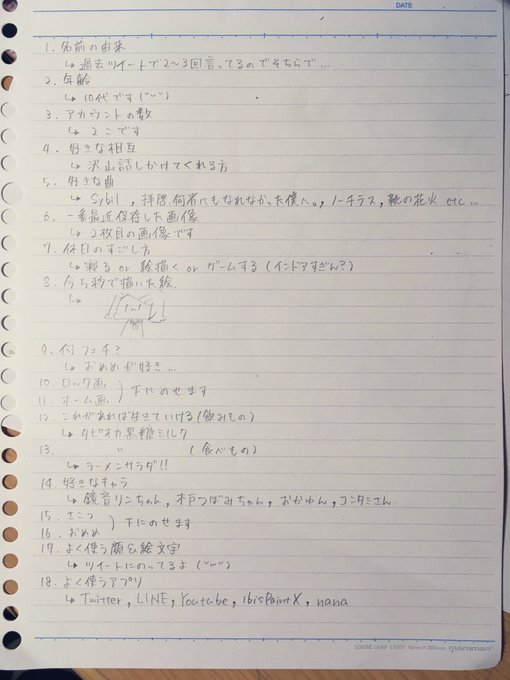 DATE
1. 名前の由来
↳ 過去ツイートで2〜3回言ってるのでそちらで…
2. 年齢
↳ 10代です(˘ᵕ˘)
3. アカウントの数
↳ 2コです
4. 好きな相互
↳ 沢山話しかけてくれる方
5. 好きな曲
↳ Sybil, 拝啓何者にもなれなかった僕へ。, ノーチラス, 靴の花火 etc…
6. 一番最近保存した画像
↳ 2枚目の画像です
7. 休日のすごし方
↳ 寝る or 絵描く or ゲームする (インドアすぎん?)
8. 今5秒で描いた絵
↳
9. 何フェチ?
↳ おめめが好き…
10. ロック画
11. ホーム画 ) 下にのせます
12. これがあれば生きていける (飲みもの)
↳ タピオカ黒糖ミルク
13. 〃 (食べもの)
↳ ラーメンサラダ!!
14 好きなキャラ
↳ 鏡音リンちゃん, 木戸つぼみちゃん, おかゆん, コンタミさん
15. さこつ
16. おめめ ) 下にのせます
17. よく使う顔&絵文字
↳ ツイートにのってるよ (˘ᵕ˘)
18. よく使うアプリ
↳ Twitter, LINE, Youtube, ibisPaintX, nana
LOOSE LEAF L1200 maruman